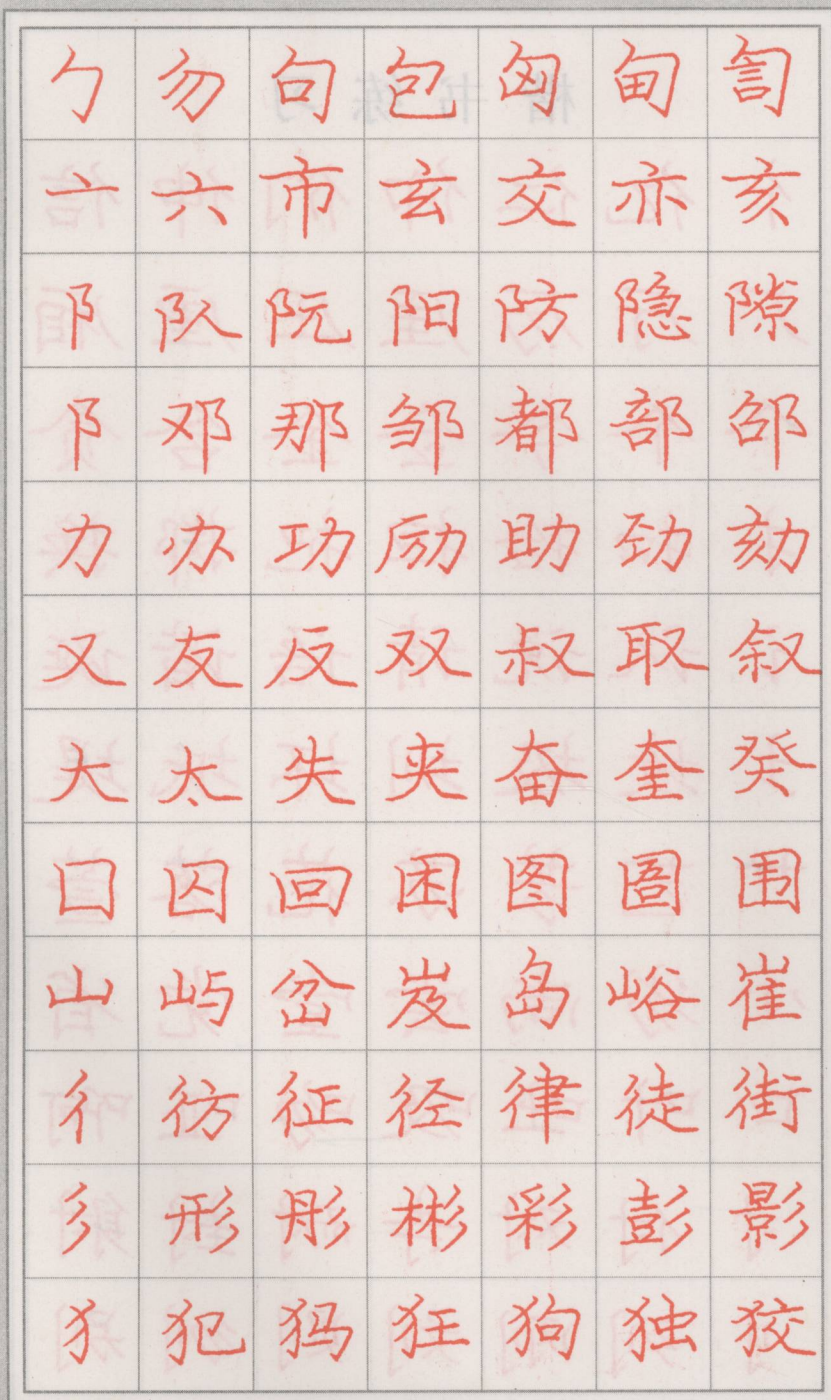 勹勿句包匈甸訇
亠六市玄交亦亥
阝队阮阳防隐隙
阝邓那邹都部邵
力办功励助劲劾
又友反双叔取叙
大太失夹奋奎癸
囗囚回困图圄围
山屿岔岌岛峪崔
彳彷征径律徒街
彡形彤彬彩彭影
犭犯犸狂狗独狡